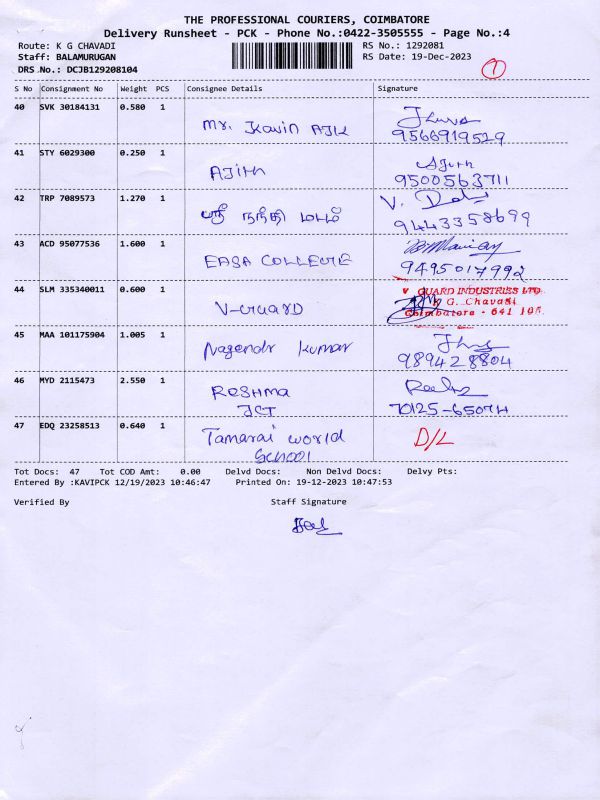 THE PROFESSIONAL COURIERS, COIMBATORE
Delivery Runsheet - PCK - Phone No.:0422-3505555 - Page No.:4
Route: K G CHAVADI RS No.: 1292081
Staff: BALAMURUGAN RS Date: 19-Dec-2023
DRS No.: DCJB129208104 1
S No Consignment No Weight PCS Consignee Details Signature
40 SVK 30184131 0.580 1
Mr. Kavin AJIL 9566919529
41 STY 6029300 0.250 1
AJITH Ajith
9500563711
42 TRP 7089573 1.270 1
ஸ்ரீ நந்தி மடம் V.
9443358699
43 ACD 95077536 1.600 1
EASA COLLEGE 9495017992
44 SLM 335340011 0.600 1
V-GUARD V GUARD INDUSTRIES LTD
K G. Chavadi
Coimbatore - 641 105.
45 MAA 101175904 1.005 1
Nagendr kumar 9894228804
46 MYD 2115473 2.550 1
RESHMA
JCT 70125-65074
47 EDQ 23258513 0.640 1
Tamarai world D/L
School
Tot Docs: 47 Tot COD Amt: 0.00 Delvd Docs: Non Delvd Docs: Delvy Pts:
Entered By :KAVIPCK 12/19/2023 10:46:47 Printed On: 19-12-2023 10:47:53
Verified By Staff Signature